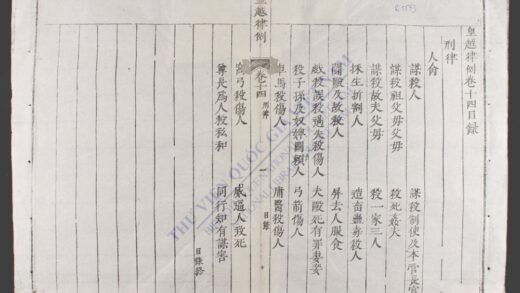 皇越律例卷十四目録
刑律
人命
謀殺人 謀殺制使及本管長官
謀殺祖父母父母 殺死姦夫
謀殺故夫父母 殺一家三人
採生折割人 造畜蠱毒殺人
鬬毆及故殺人 屏去人服食
戲殺誤殺過失殺傷人 夫毆死有罪妻妾
殺子孫及奴婢圖頼人 弓箭傷人
車馬殺傷人 庸醫殺傷人
皇越律例 卷十四 刑律 一 目録
窩弓殺傷人 威逼人致死
尊長爲人殺私和 同行知有謀害
目録終
THƯ VIỆN QUỐC GIA VIỆT NAM